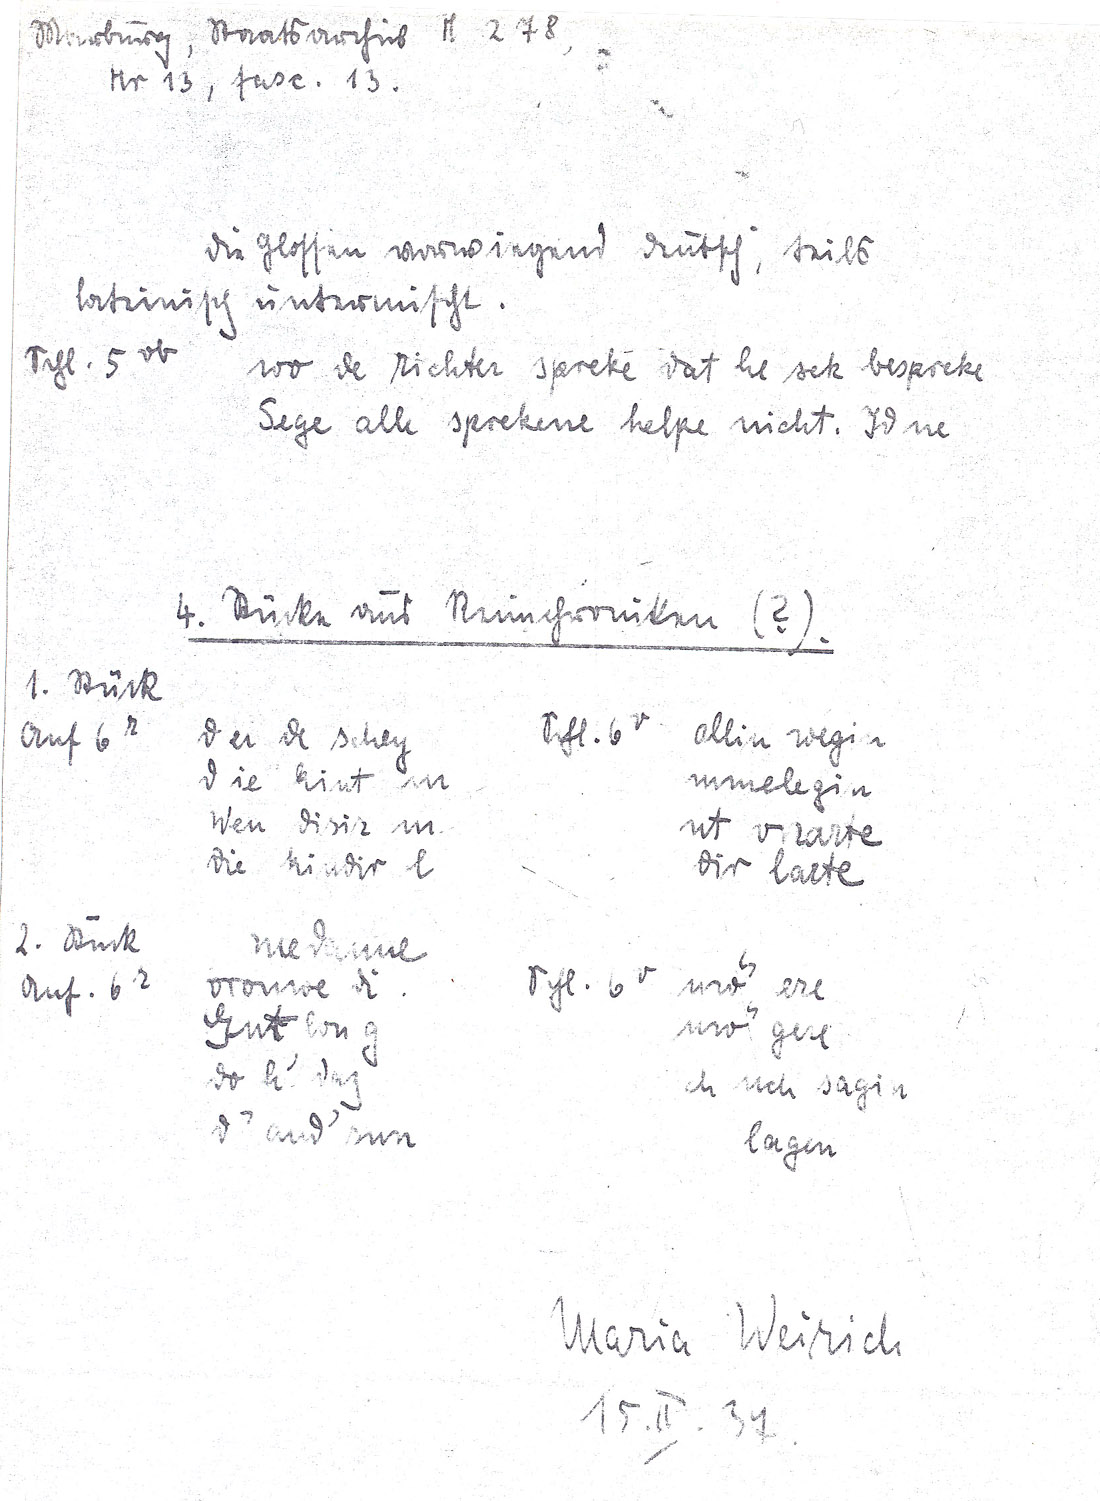 Marburg, Staatsarchiv M 278,
Nr 13, fasc. 13.
die Glossen vorwiegend deutsch, teils
lateinisch untermischt.
Schl. 5 vb wo de richter spreke dat he sek bespreke
Sege alle sprekene helpe nicht. Id ne
4. Stücke aus Reimchroniken (?).
1. Stück
Anf 6 r der de schey Schl. 6 v allin wegin
die kint m mmelegin
Wen disir m nt vrzarte
die kindir l dir larte
2. Stück medanne
Anf. 6 r vrouwe di Schl. 6 v ere
Gut lon g gere
do h' day ch uch sagin
d' and' sun lagen
Maria Weirich
15.II.37.